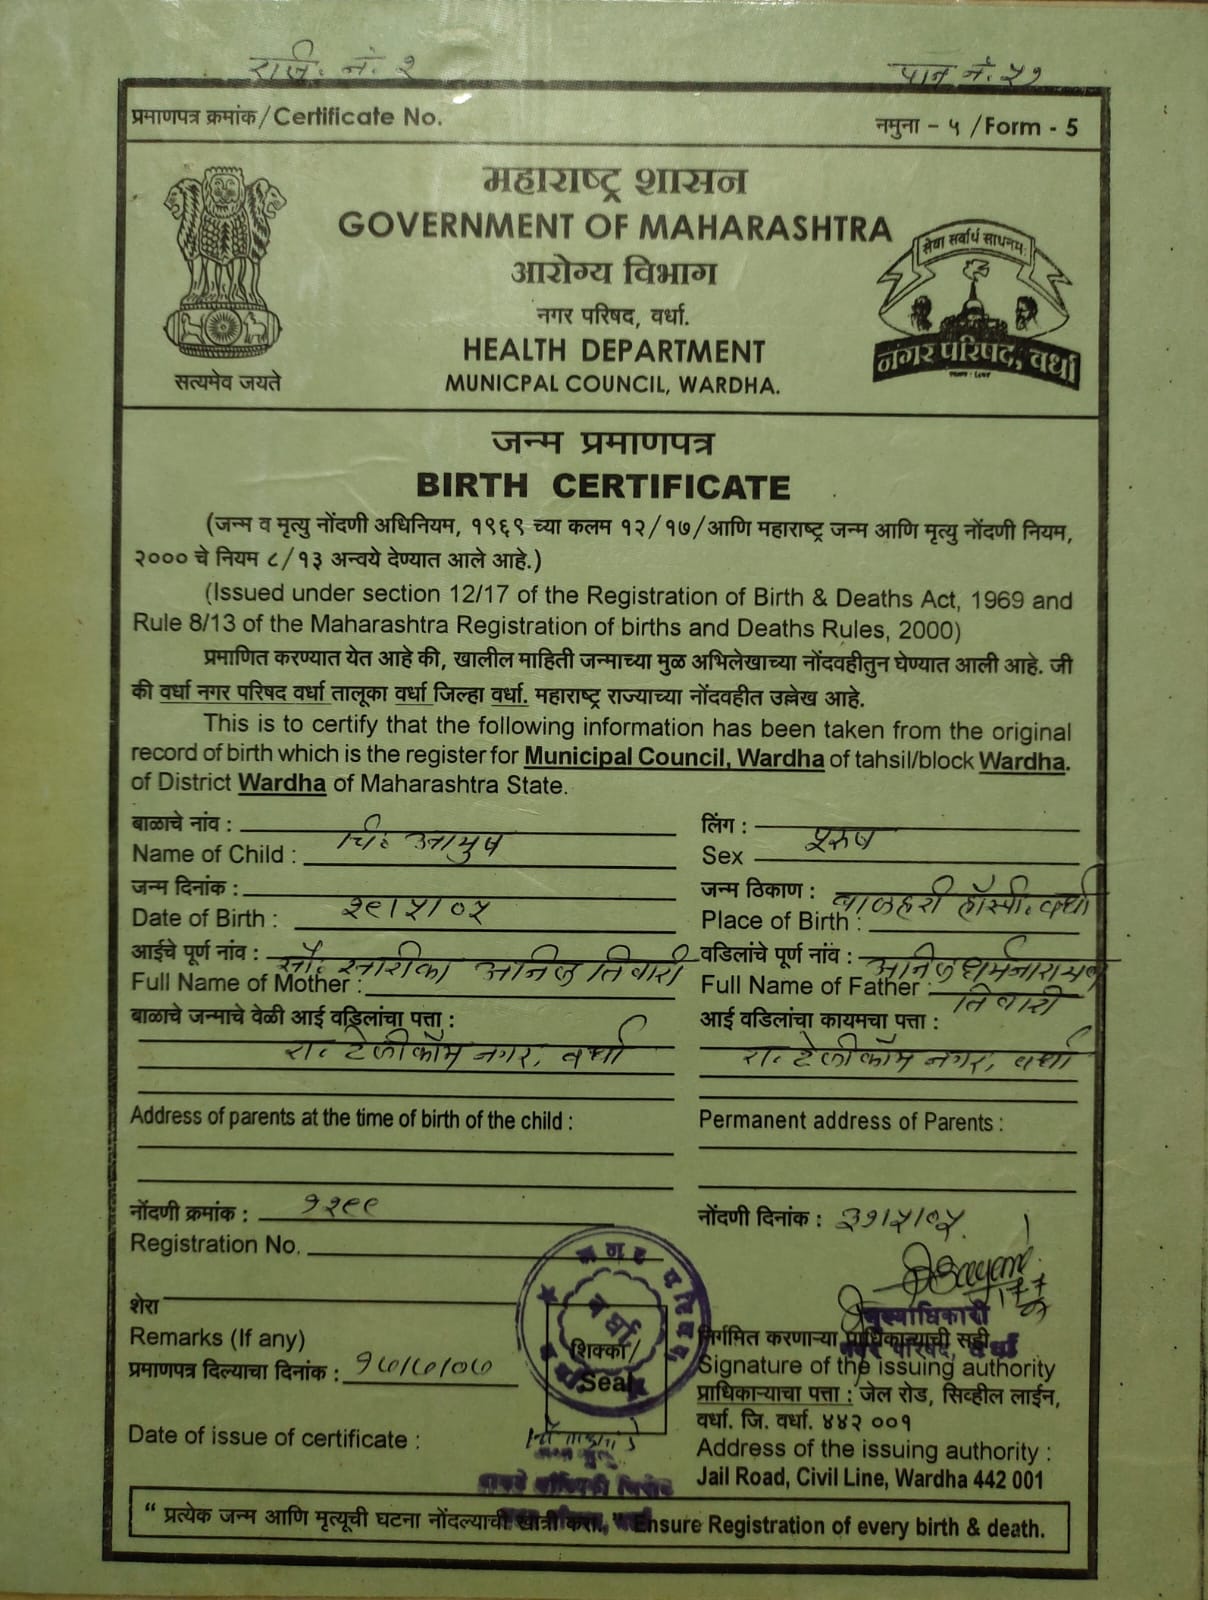 रजि. नं. २
पान नं. ५१
प्रमाणपत्र क्रमांक/Certificate No.
नमुना - ५ /Form - 5
महाराष्ट्र शासन
GOVERNMENT OF MAHARASHTRA
आरोग्य विभाग
नगर परिषद, वर्धा.
HEALTH DEPARTMENT
MUNICPAL COUNCIL, WARDHA.
सत्यमेव जयते
सेवा सर्वार्थ साधनमः
नगर परिषद, वर्धा
जन्म प्रमाणपत्र
BIRTH CERTIFICATE
(जन्म व मृत्यु नोंदणी अधिनियम, १९६९ च्या कलम १२/१७/आणि महाराष्ट्र जन्म आणि मृत्यु नोंदणी नियम,
२००० चे नियम ८/१३ अन्वये देण्यात आले आहे.)
(Issued under section 12/17 of the Registration of Birth & Deaths Act, 1969 and
Rule 8/13 of the Maharashtra Registration of births and Deaths Rules, 2000)
प्रमाणित करण्यात येत आहे की, खालील माहिती जन्माच्या मुळ अभिलेखाच्या नोंदवहीतुन घेण्यात आली आहे. जी
की वर्धा नगर परिषद वर्धा तालूका वर्धा जिल्हा वर्धा. महाराष्ट्र राज्याच्या नोंदवहीत उल्लेख आहे.
This is to certify that the following information has been taken from the original
record of birth which is the register for Municipal Council, Wardha of tahsil/block Wardha.
of District Wardha of Maharashtra State.
बाळाचे नांव :
Name of Child : चि. आयुष
लिंग :
Sex पुरुष
जन्म दिनांक :
Date of Birth : २९/५/०५
जन्म ठिकाण : वाळहरी हॉस्पी. वर्धा
Place of Birth :
आईचे पूर्ण नांव : सौ. सारीका अनिल तिवारी
Full Name of Mother :
वडिलांचे पूर्ण नांव : अनिल धर्मनारायण
Full Name of Father : तिवारी
बाळाचे जन्माचे वेळी आई वडिलांचा पत्ता :
रा. टेलीकॉम नगर, वर्धा
आई वडिलांचा कायमचा पत्ता :
रा. टेलीकॉम नगर, वर्धा
Address of parents at the time of birth of the child :
Permanent address of Parents :
नोंदणी क्रमांक : १२९९
Registration No.
नोंदणी दिनांक : ३१/५/०५
शेरा
Remarks (If any)
प्रमाणपत्र दिल्याचा दिनांक : १७/७/०७
Date of issue of certificate :
नगर परिषद
वर्धा
शिक्का/
Seal
मुख्याधिकारी
नगर परिषद, वर्धा
निर्गमित करणाऱ्या प्राधिकाऱ्याची सही
Signature of the issuing authority
प्राधिकाऱ्याचा पत्ता : जेल रोड, सिव्हील लाईन,
वर्धा. जि. वर्धा. ४४२ ००१
Address of the issuing authority :
Jail Road, Civil Line, Wardha 442 001
“ प्रत्येक जन्म आणि मृत्यूची घटना नोंदल्याची खात्री करा. ” Ensure Registration of every birth & death.